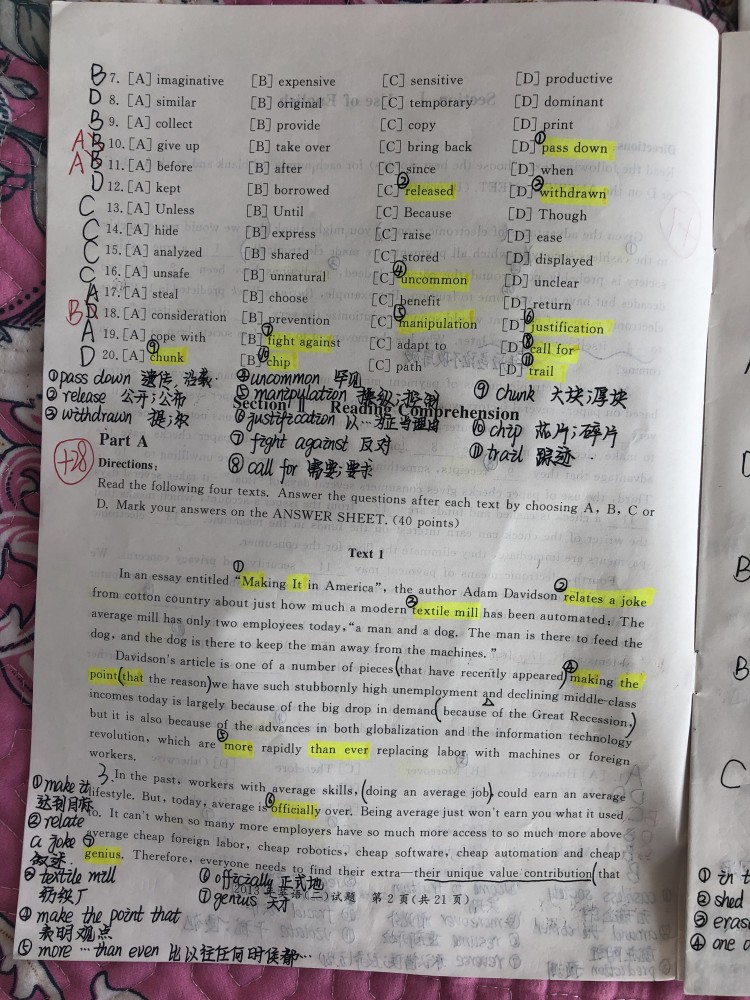 B 7. [A] imaginative [B] expensive [C] sensitive [D] productive
D 8. [A] similar [B] original [C] temporary [D] dominant
B 9. [A] collect [B] provide [C] copy [D] print
A B 10. [A] give up [B] take over [C] bring back [D] ①pass down
A B 11. [A] before [B] after [C] since [D] when
D 12. [A] kept [B] borrowed [C] ②released [D] ③withdrawn
C 13. [A] Unless [B] Until [C] Because [D] Though
C 14. [A] hide [B] express [C] raise [D] ease
C 15. [A] analyzed [B] shared [C] stored [D] displayed
C 16. [A] unsafe [B] unnatural [C] ④uncommon [D] unclear
A 17. [A] steal [B] choose [C] benefit [D] return
B D 18. [A] consideration [B] prevention [C] ⑤manipulation [D] ⑥justification
A 19. [A] cope with [B] ⑦fight against [C] adapt to [D] ⑧call for
D 20. [A] ⑨chunk [B] ⑩chip [C] path [D] ⑪trail
①pass down 遗传，沿袭 ④uncommon 罕见 ⑨ chunk 大块；厚块
②release 公开；公布 ⑤manipulation 操纵；控制
Section Ⅱ Reading Comprehension
③withdrawn 提取 ⑥justification 以…为正当理由 ⑩chip 芯片；碎片
Part A ⑦ fight against 反对 ⑪trail 踪迹
+28 Directions: ⑧ call for 需要；要求
Read the following four texts. Answer the questions after each text by choosing A, B, C or
D. Mark your answers on the ANSWER SHEET. (40 points)
Text 1
In an essay entitled “①Making It in America”, the author Adam Davidson ②relates a joke
from cotton country about just how much a modern ③textile mill has been automated: The
average mill has only two employees today, “a man and a dog. The man is there to feed the
dog, and the dog is there to keep the man away from the machines.”
Davidson's article is one of a number of pieces (that have recently appeared) ④making the
point (that the reason) we have such stubbornly high unemployment and declining middle-class
incomes today is largely because of the big drop in demand (because of the Great Recession,)
but it is also because of the advances in both globalization and the information technology
revolution, which are ⑤more rapidly than ever replacing labor with machines or foreign
workers.
3. In the past, workers with average skills, (doing an average job,) could earn an average
①make it lifestyle. But, today, average is ⑥officially over. Being average just won't earn you what it used
达到目标 to. It can't when so many more employers have so much more access to so much more above
②relate a joke average cheap foreign labor, cheap robotics, cheap software, cheap automation and cheap
叙述 ⑦genius. Therefore, everyone needs to find their extra—their unique value contribution (that
③textile mill ⑥officially 正式地
纺织厂 ⑦genius 天才
2013年英语(二)试题 第2页(共21页)
④make the point that
表明观点
⑤more …than even 比以往任何时候都…
① in t
② shed
③ eras
④ one a